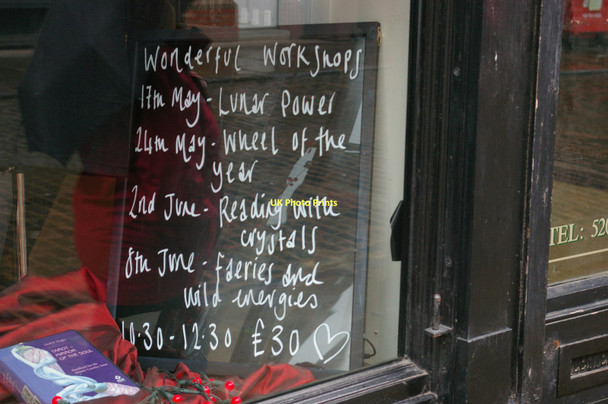 Wonderful Workshops
17th May - Lunar Power
24th May - Wheel of the
year
UK Photo Prints
2nd June - Reading with
crystals
8th June - faeries and
wild energies
10.30 - 12.30 £30
TEL: 520
TAROT
MIRROR
OF THE SOUL